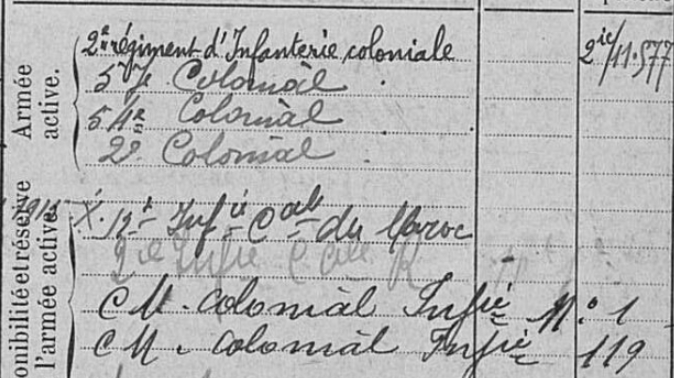 Armée active.
2e régiment d'Infanterie coloniale 2ic/11.577
Colonial
54e Colonial
2e Colonial
onibilité et réserve
l'armée active
X. 12e Infie Cale du Maroc
2ie Infie Cale R
C M. colonial Infie N° 1
C M. colonial Infie 119